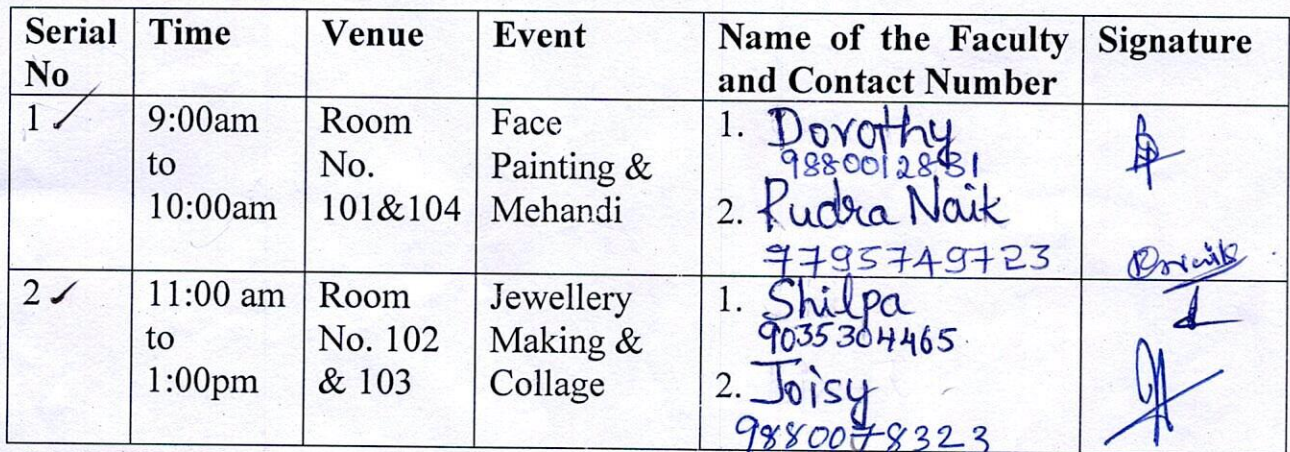 Serial No
Time
Venue
Event
Name of the Faculty and Contact Number
Signature
1 ✓
9:00am
to
10:00am
Room
No.
101&104
Face
Painting &
Mehandi
1. Dorothy
9880012831
2. Rudra Naik
7795749723
2 ✓
11:00 am
to
1:00pm
Room
No. 102
& 103
Jewellery
Making &
Collage
1. Shilpa
9035304465
2. Joisy
9880078323